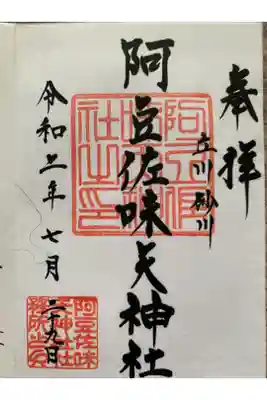 奉拝
立川 砂川
阿豆佐味天神社
令和 年 七月
二十九日
阿豆佐
味天神
社之印
阿豆佐味
天神社社
務所之印